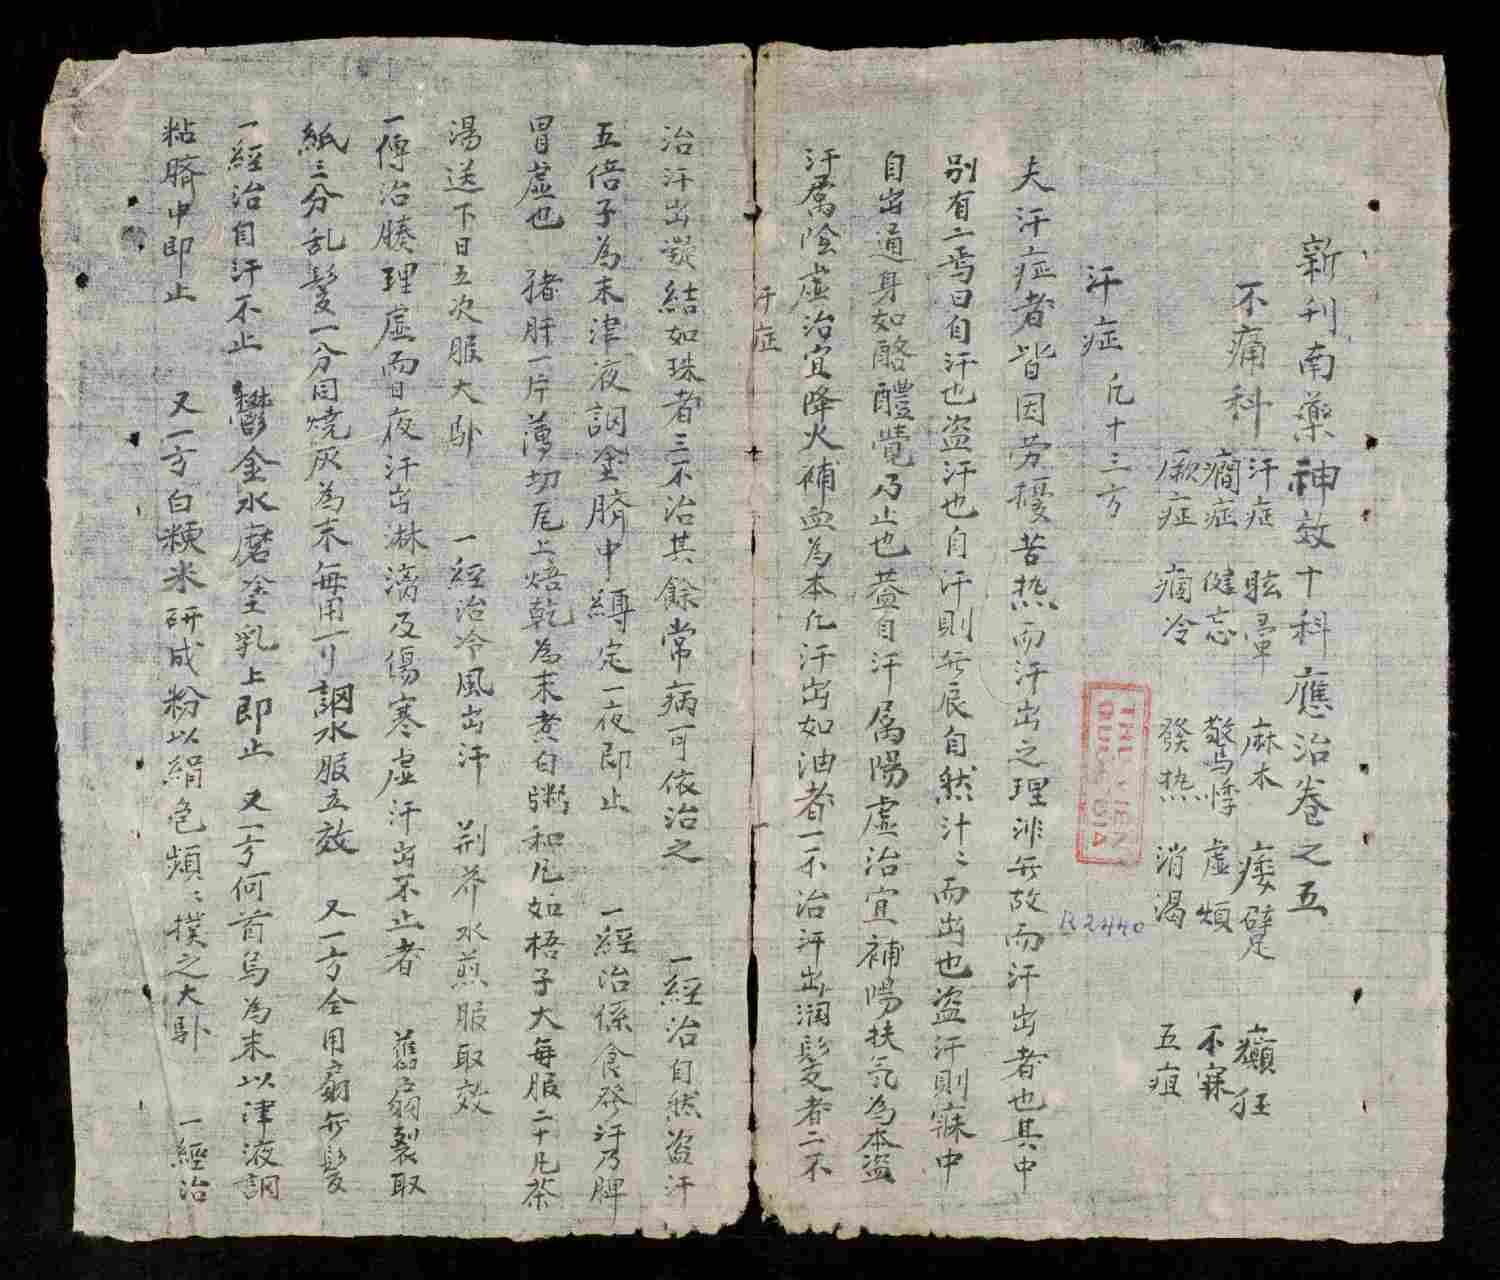 新刊南藥神效十科應治卷之五
不痛科
汗症 眩暈 麻木 痿躄 癲狂
癇症 健忘 驚悸 虛煩 不寐
厥症 痼冷 發热 消渴 五疸
汗症 凢十三方
夫汗症者皆因劳擾苦热而汗出之理非無故而汗出者也其中
别有二焉曰自汗也盗汗也自汗則無辰自然汁〻而出也盗汗則寐中
自出通身如酪醴覺乃止也葢自汗属陽虛治宜補陽扶氣為本盗
汗属陰虛治宜降火補血為本凢汗出如油者一不治汗出润髮者二不
汗症
治汗出凝結如珠者三不治其餘常病可依治之 一經治自然盗汗
五倍子為末津液調塗臍中縳定一夜即止 一經治係食發汗乃脾
胃虛也 猪肝一片薄切瓦上焙乾為末煑白粥和凡如梧子大每服二十凡茶
湯送下日五次服大卧 一經治冷風出汗 荆芥水煎服取效
一傳治腠理虛而日夜汗出淋漓及傷寒虛汗出不止者 舊扇裂取
紙三分乱髮一分同燒灰為末每用一刂調水服立效 又一方全用扇無髮
一經治自汗不止 鬱金水磨塗乳上即止 又一方何首烏為末以津液調
粘臍中即止 又一方白粳米研成粉以絹包頻〻撲之大卧 一經治
B2440